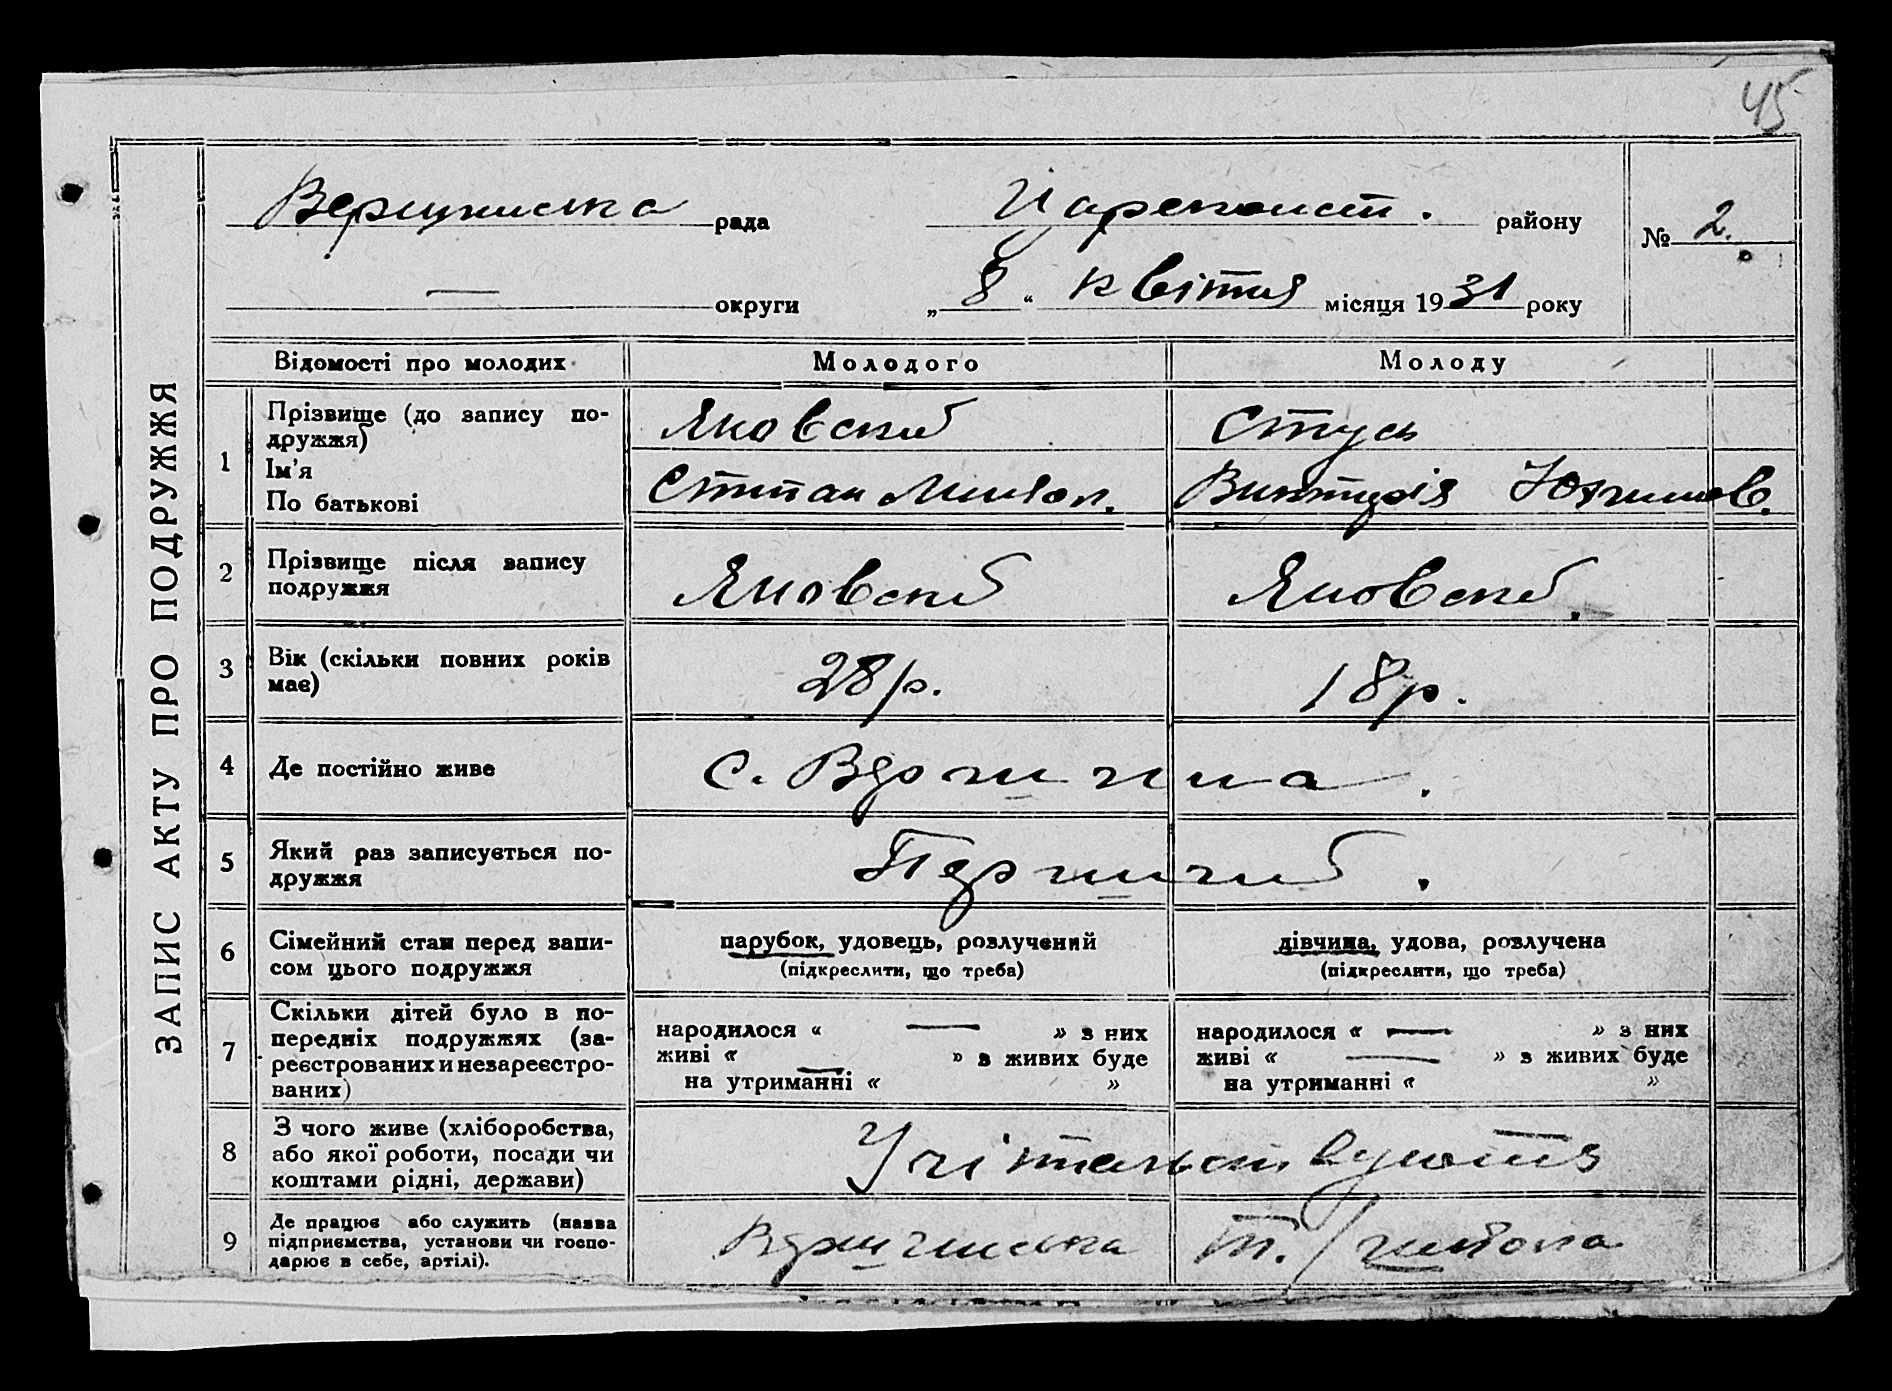 45
ЗАПИС АКТУ ПРО ПОДРУЖЖЯ
рада Цареконст. району № 2.
— округи „ 8 “ квітня місяця 1931 року
Відомості про молодих Молодого Молоду
1 Прізвище (до запису по-
дружжя) Яновский Стусь
Ім'я
По батькові Степан Микол. Виктурія Юхимов.
2 Прізвище після запису
подружжя Яновский Яновский.
3 Вік (скільки повних років
має) 28 р. 18 р.
4 Де постійно живе с. Вершина.
5 Який раз записується по-
дружжя Перший.
6 Сімейний стан перед запи-
сом цього подружжя парубок, удовець, розлучений дівчина, удова, розлучена
(підкреслити, що треба) (підкреслити, що треба)
7 Скільки дітей було в по-
передніх подружжях (за-
реєстрованих и незареєстро-
ваних)
народилося « — » з них народилося « — » з них
живі « » з живих буде живі « — » з живих буде
на утриманні « » на утриманні « »
8 З чого живе (хліборобства,
або якої роботи, посади чи
коштами рідні, держави) Учітельствують
9 Де працює або служить (назва
підприємства, установи чи госпо-
дарює в себе, артілі). Вершинська т./школа